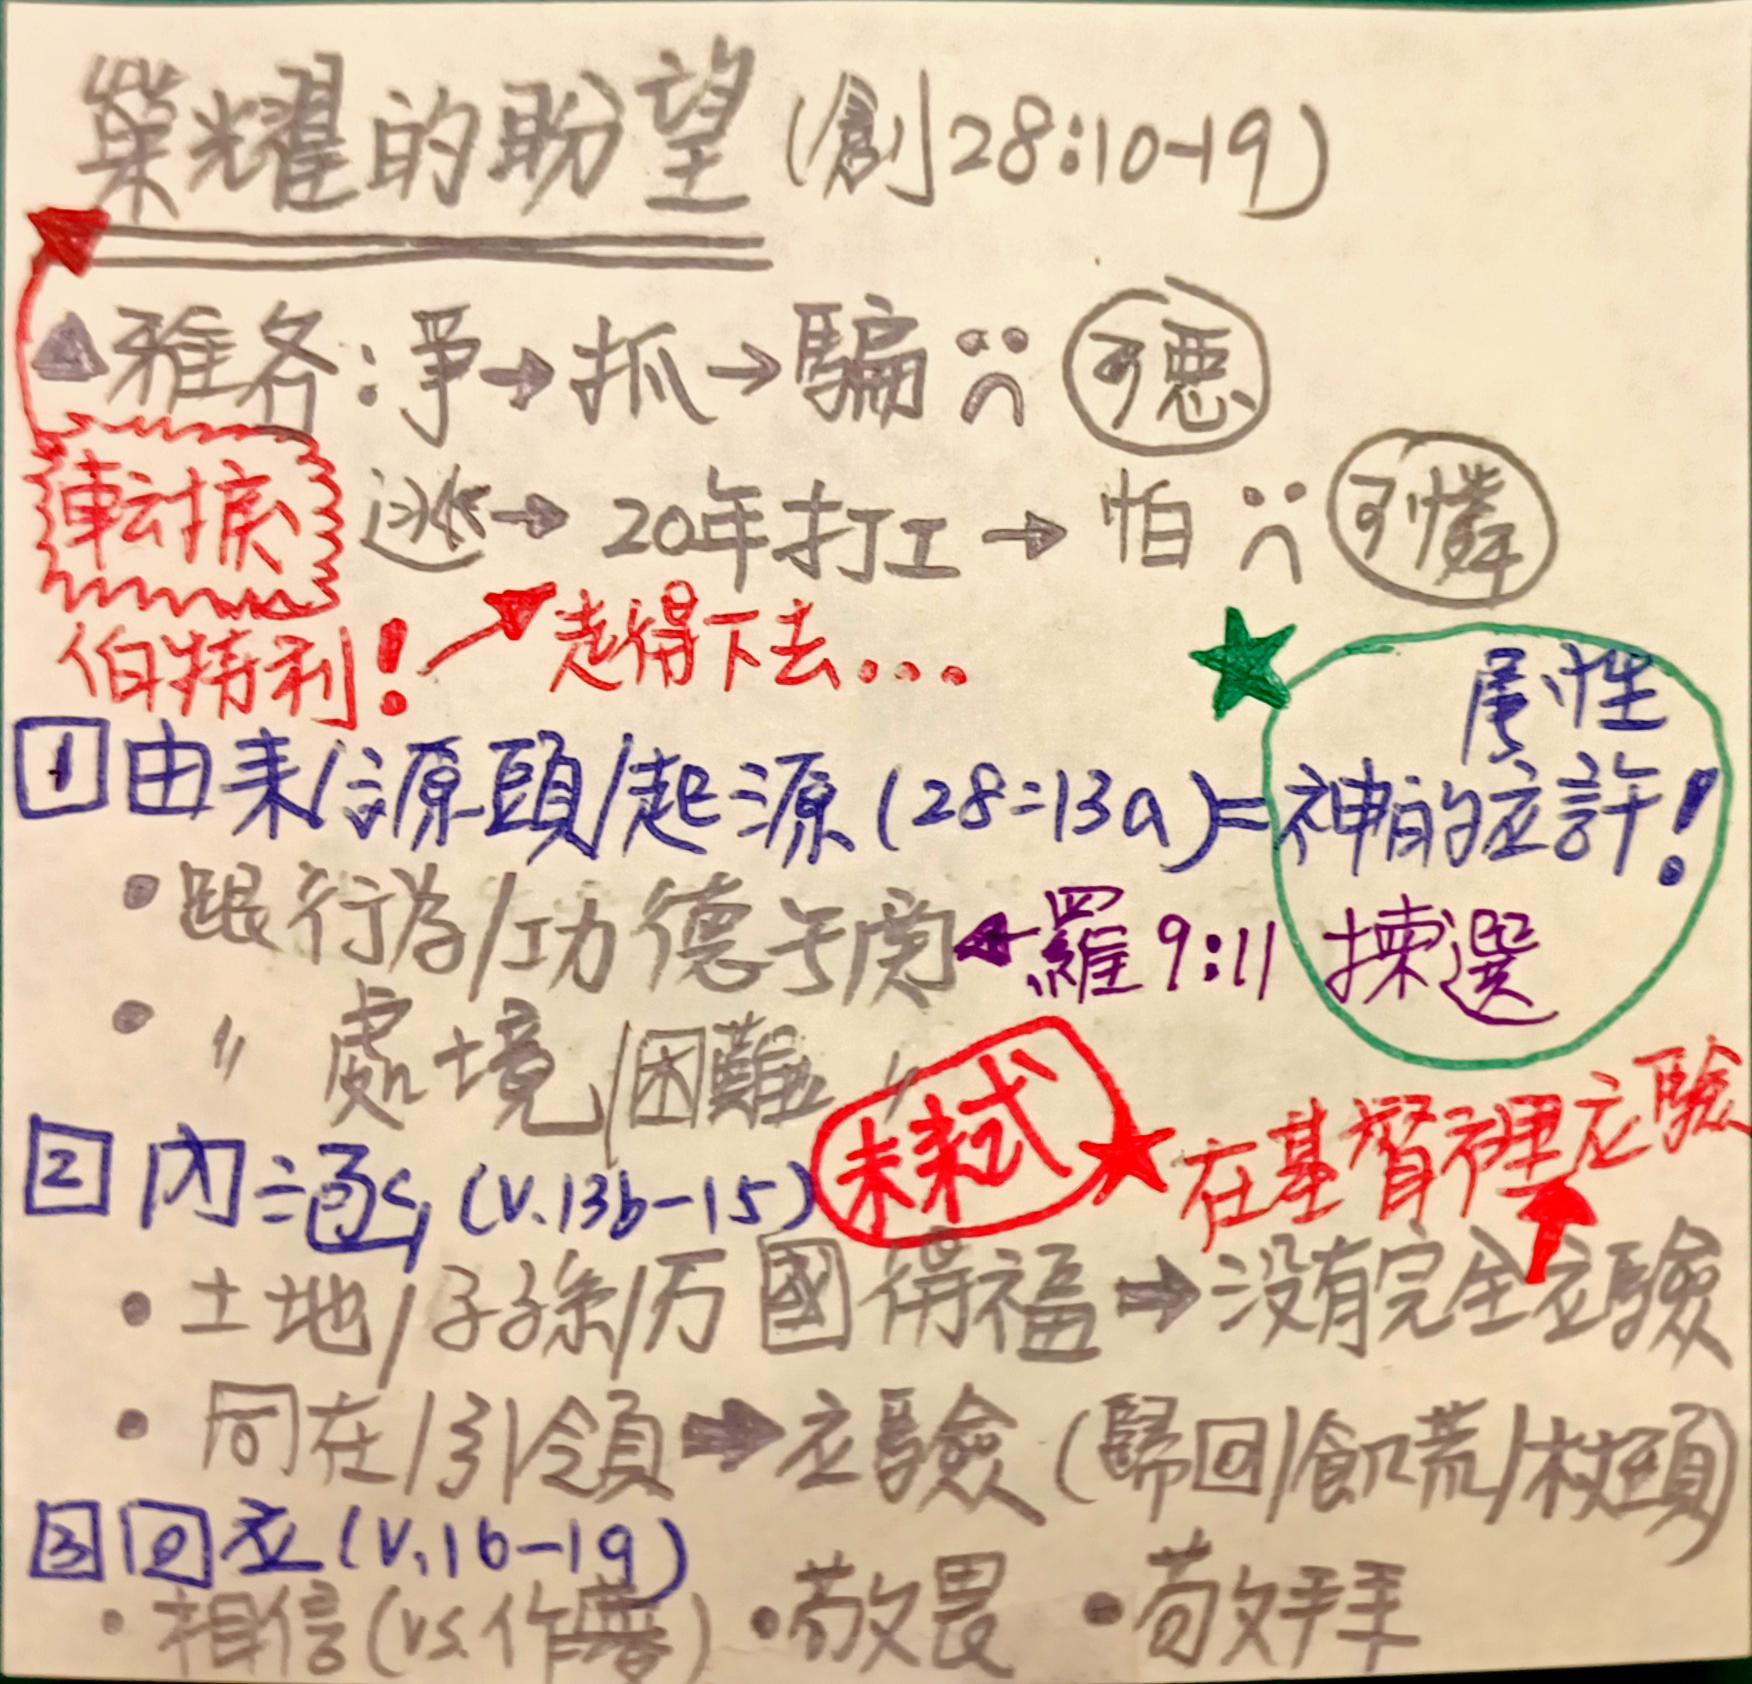 榮耀的盼望 (創28:10-19)
雅各:爭→抓→騙 可惡
轉捩
逃→20年打工→怕 可憐
伯特利! 走得下去...
屬性
1 由来/源頭/起源 (28:13a)=神的应許!
•跟行為/功德无関←羅9:11 揀選
•〃 處境/困難 〃
2 内涵 (v.13b-15) 未来式 ★在基督裡应驗
•土地/子孫/万國得福→没有完全应驗
•同在/引領→应驗(歸回/飢荒/枕頭)
3 回应(v.16-19)
•相信(vs.作夢) •敬畏 •敬拜